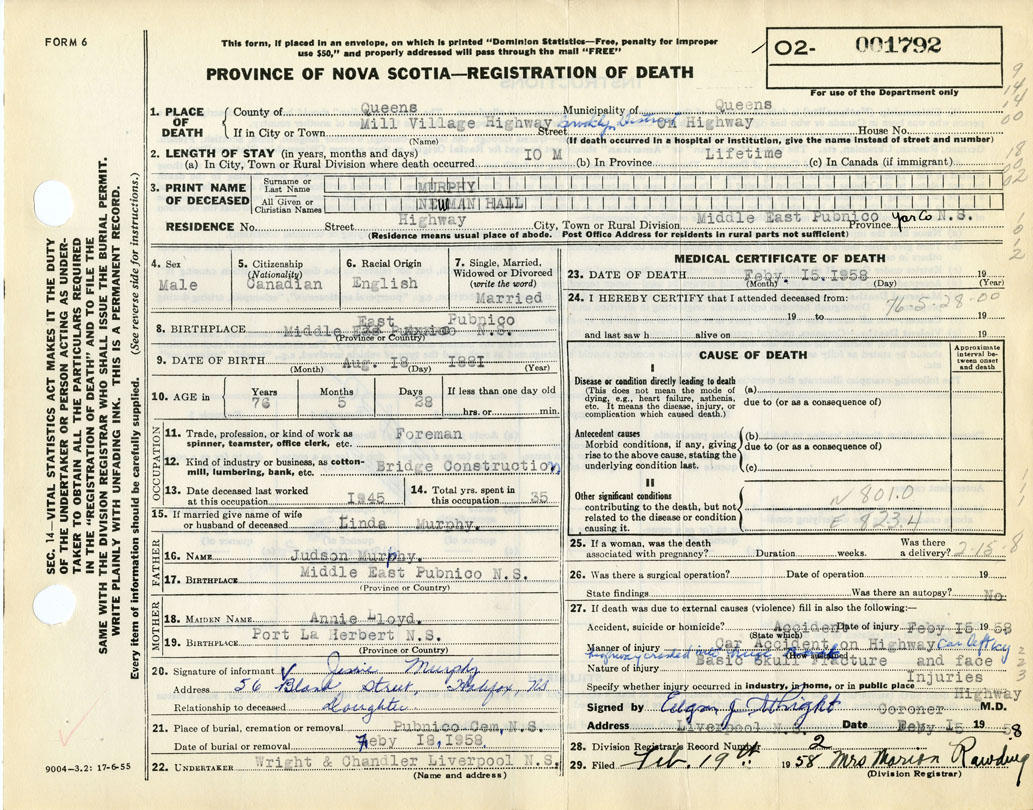 FORM 6
This form, if placed in an envelope, on which is printed "Dominion Statistics—Free, penalty for improper
use $50," and properly addressed will pass through the mail "FREE"
PROVINCE OF NOVA SCOTIA—REGISTRATION OF DEATH
02- 001792
For use of the Department only
SEC. 14—VITAL STATISTICS ACT MAKES IT THE DUTY
OF THE UNDERTAKER OR PERSON ACTING AS UNDER-
TAKER TO OBTAIN ALL THE PARTICULARS REQUIRED
IN THE "REGISTRATION OF DEATH" AND TO FILE THE
SAME WITH THE DIVISION REGISTRAR WHO SHALL ISSUE THE BURIAL PERMIT.
WRITE PLAINLY WITH UNFADING INK. THIS IS A PERMANENT RECORD.
Every item of information should be carefully supplied. (See reverse side for instructions.)
1. PLACE OF DEATH County of Queens Municipality of Queens
If in City or Town Mill Village Highway Street Brooklyn District on Highway House No.
(Name) (If death occurred in a hospital or institution, give the name instead of street and number)
2. LENGTH OF STAY (in years, months and days)
(a) In City, Town or Rural Division where death occurred 10 M (b) In Province Lifetime (c) In Canada (if immigrant)
3. PRINT NAME OF DECEASED Surname or Last Name MURPHY
All Given or Christian Names NEWMAN HALL
RESIDENCE No. Street Highway City, Town or Rural Division Middle East Pubnico Yar Co Province N.S.
(Residence means usual place of abode. Post Office Address for residents in rural parts not sufficient)
4. Sex Male
5. Citizenship (Nationality) Canadian
6. Racial Origin English
7. Single, Married, Widowed or Divorced (write the word) Married
8. BIRTHPLACE Middle East Pubnico N.S.
(Province or Country)
9. DATE OF BIRTH Aug. 18 1881
(Month) (Day) (Year)
10. AGE in Years 76 Months 5 Days 28 If less than one day old hrs. or min.
OCCUPATION
11. Trade, profession, or kind of work as spinner, teamster, office clerk, etc. Foreman
12. Kind of industry or business, as cotton-mill, lumbering, bank, etc. Bridge Construction
13. Date deceased last worked at this occupation 1945
14. Total yrs. spent in this occupation 35
15. If married give name of wife or husband of deceased Linda Murphy.
FATHER
16. NAME Judson Murphy.
17. BIRTHPLACE Middle East Pubnico N.S.
(Province or Country)
MOTHER
18. MAIDEN NAME Annie Lloyd.
19. BIRTHPLACE Port La Herbert N.S.
(Province or Country)
20. Signature of informant Murphy
Address 56 Bland Street, Halifax, NS
Relationship to deceased Daughter
21. Place of burial, cremation or removal Pubnico Cem, N.S.
Date of burial or removal Feby 18, 1958
22. UNDERTAKER Wright & Chandler Liverpool N.S.
(Name and address)
9004—3.2: 17-6-55
MEDICAL CERTIFICATE OF DEATH
23. DATE OF DEATH Feby. 15.1958 19
(Month) (Day) (Year)
24. I HEREBY CERTIFY that I attended deceased from: 76-5-28-00
19 to 19
and last saw h alive on 19
CAUSE OF DEATH
Approximate interval between onset and death
I
Disease or condition directly leading to death
(This does not mean the mode of dying, e.g., heart failure, asthenia, etc. It means the disease, injury, or complication which caused death.)
(a)
due to (or as a consequence of)
Antecedent causes
Morbid conditions, if any, giving rise to the above cause, stating the underlying condition last.
(b)
due to (or as a consequence of)
(c)
II
Other significant conditions
contributing to the death, but not related to the disease or condition causing it.
N 801.0
E 823.4
25. If a woman, was the death associated with pregnancy? Duration weeks. Was there a delivery? 2-15-8
26. Was there a surgical operation? Date of operation 19
State findings Was there an autopsy? No
27. If death was due to external causes (violence) fill in also the following:—
Accident, suicide or homicide? Accident Date of injury Feby 15 1958
(State which)
Manner of injury Car Accident on Highway Car left
(How sustained)
Nature of injury Basic Skull Fracture and face
Injuries
Specify whether injury occurred in industry, in home, or in public place Highway
Signed by Coroner M.D.
Address Liverpool N.S. Date Feby 15 1958
28. Division Registrar's Record Number 2
29. Filed Feb. 19th 1958 Mrs Marion Rawding
(Division Registrar)